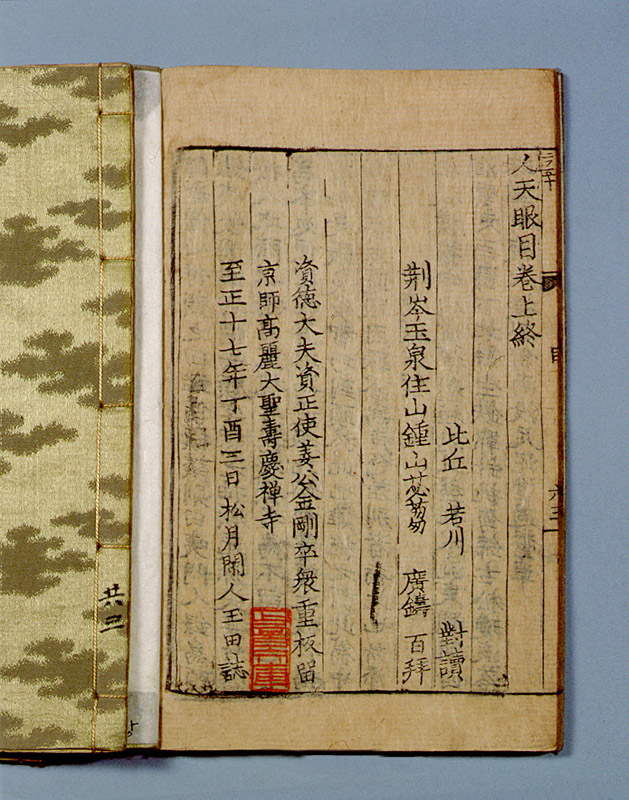 人天眼目卷上終
比丘 若川 對讀
荆岑玉泉住山鍾山苾蒭 廣鑄 百拜
資德大夫資正使姜公金剛卒衆重板留
京師高麗大聖壽慶禅寺
至正十七年丁酉三日松月閑人玉田誌
共二